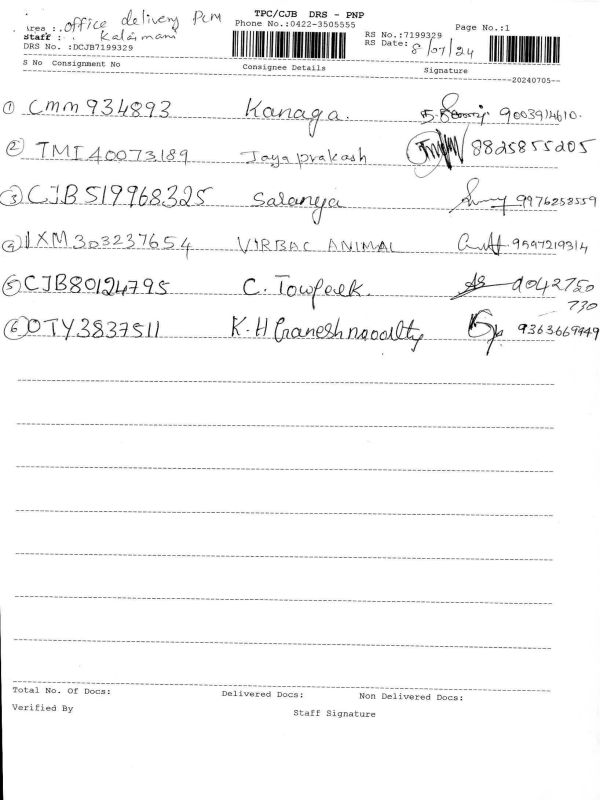 TPC/CJB DRS - PNP
Area : office delivery PCM
Phone No.:0422-3505555
Page No.:1
Staff : Kalaimani
RS No.:7199329
DRS No. :DCJB7199329
RS Date: 8/07/24
S No Consignment No Consignee Details Signature
20240705
① CMM934893 Kanaga. 9003914610.
② TMI40073189 Jayaprakash 8825855205
③ CJB519968325 Saranya 9976258559
④ IXM303237654 VIRBAC ANIMAL 9597219314
⑤ CJB80124795 C. Towfeek. 9042750
730
⑥ OTY3837511 K.H Ganesh 9363669449
Total No. Of Docs: Delivered Docs: Non Delivered Docs:
Verified By Staff Signature